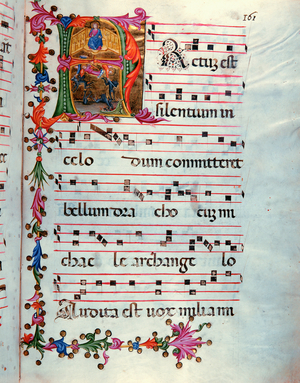 161
FActuz est
silentium in
celo dum committeret
bellum dra cho cuz mi
chae le archange lo
Audita est vox milia mi